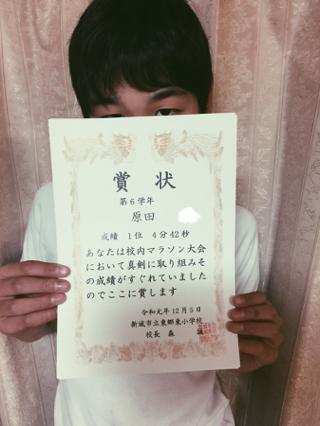 賞状
第6学年
原田
成績 1位 4分42秒
あなたは校内マラソン大会
において真剣に取り組みそ
の成績がすぐれていました
のでここに賞します
令和元年12月5日
新城市立東郷東小学校
校長 森